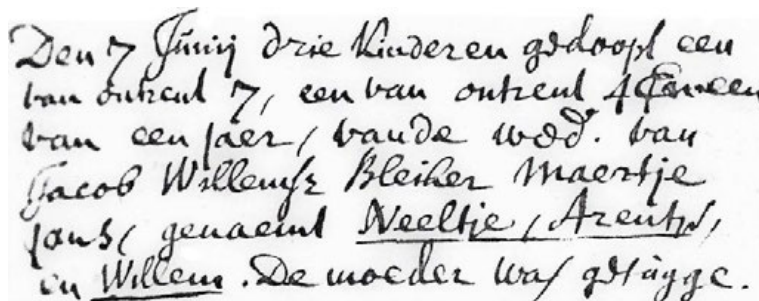 Den 7 Junij drie Kinderen gedoopt een
van ontrent 7, een van ontrent 4 en een
van een jaer, vande wed. van
Jacob Willemsz Bleiker Maertje
Jans, genaemt Neeltje, Arentje,
en Willem. De moeder was getuyge.